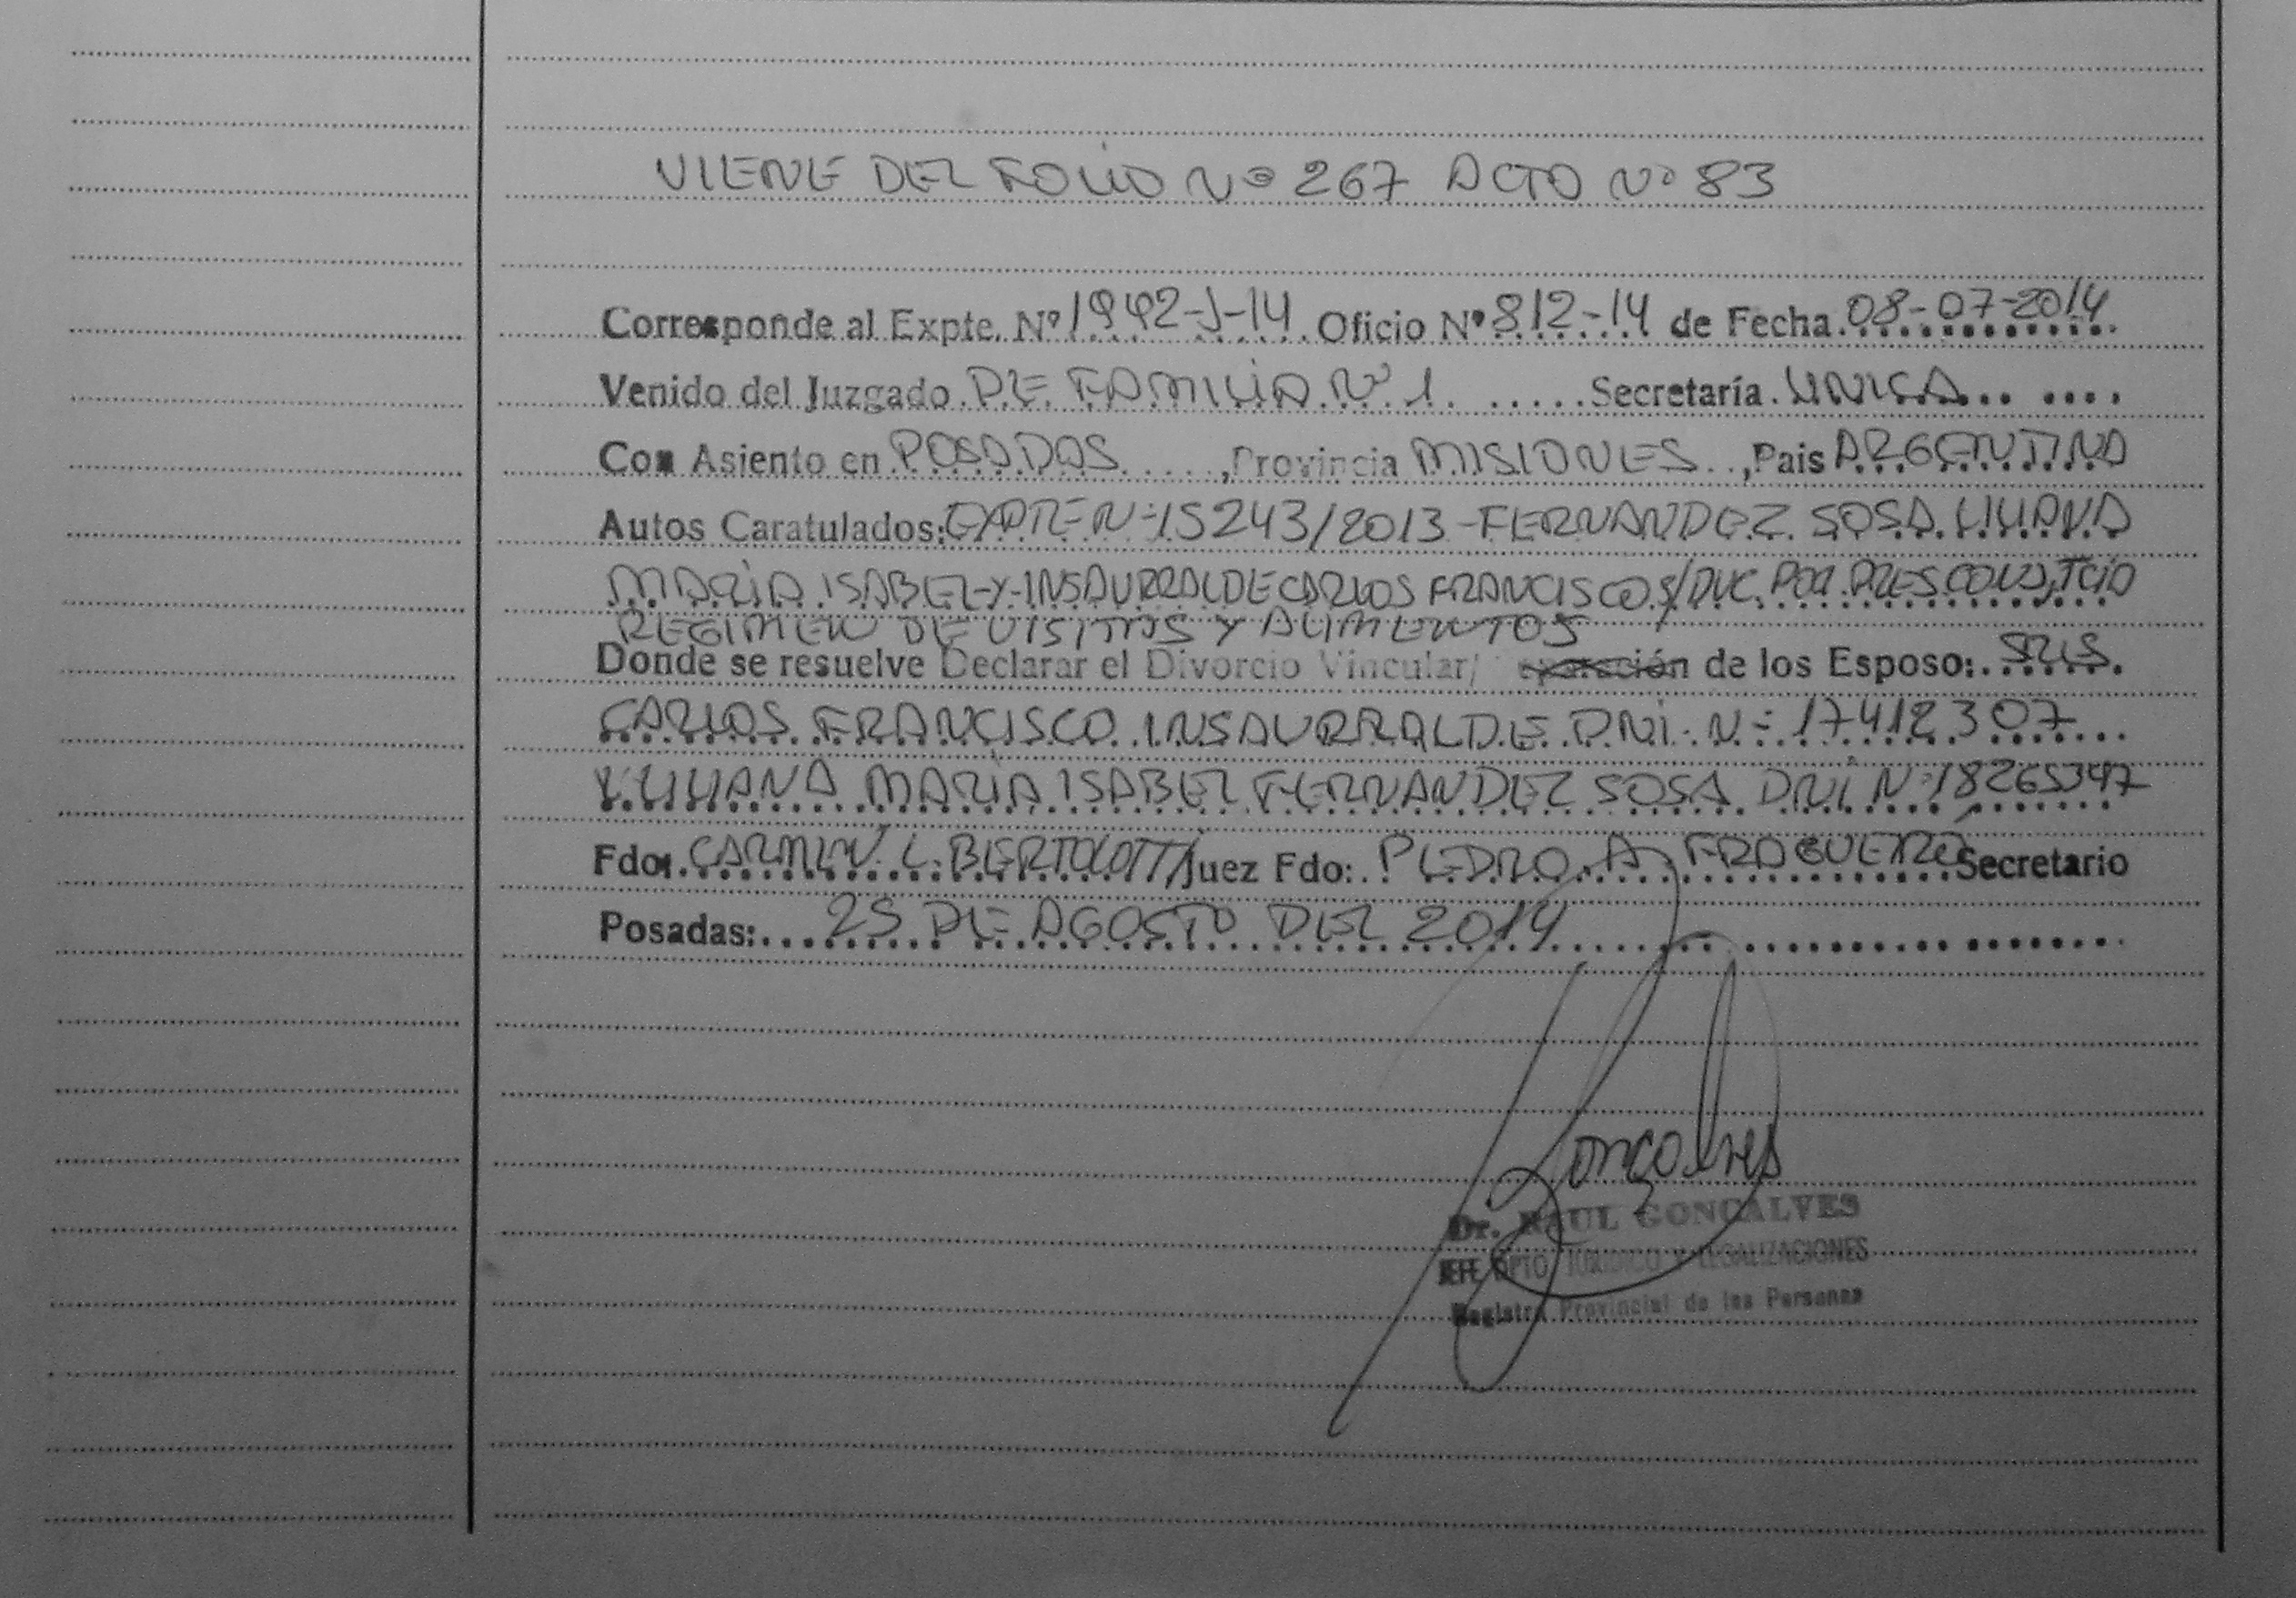 VIENE DEL FOLIO Nº 267 ACTO Nº 83
Corresponde al Expte. Nº 1942-J-14 Oficio Nº 812-14 de Fecha 08-07-2014
Venido del Juzgado DE FAMILIA Nº 1 Secretaría UNICA
Con Asiento en POSADAS, Provincia MISIONES, Pais ARGENTINA
Autos Caratulados: EXPTE Nº 15243/2013 - FERNANDEZ SOSA LILIANA
MARIA ISABEL - Y - INSAURRALDE CARLOS FRANCISCO S/ DIV. POR PRES. CONJ, TCIA
REGIMEN DE VISITAS Y ALIMENTOS
Donde se resuelve Declarar el Divorcio Vincular/ de los Esposo: SRES.
CARLOS FRANCISCO INSAURRALDE DNI. Nº 17412307
Y LILIANA MARIA ISABEL FERNANDEZ SOSA DNI Nº 18265347
Fdo: CARMEN C. BERTOLOTTI Juez Fdo: PEDRO A. FRAGUEIRO Secretario
Posadas: 25 DE AGOSTO DEL 2014
Goncalves
Dr. RAUL GONCALVES
JEFE DPTO. JURIDICO Y LEGALIZACIONES
Registro Provincial de las Personas